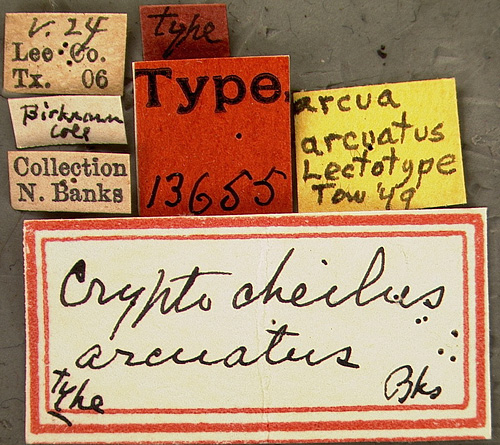 V. 24
Lee Co.
Tx. 06
Birkmann
Coll
Collection
N. Banks
type
Type
13655
arcua
arcuatus
Lectotype
Tow '49
Cryptocheilus
arcuatus
type
Bks